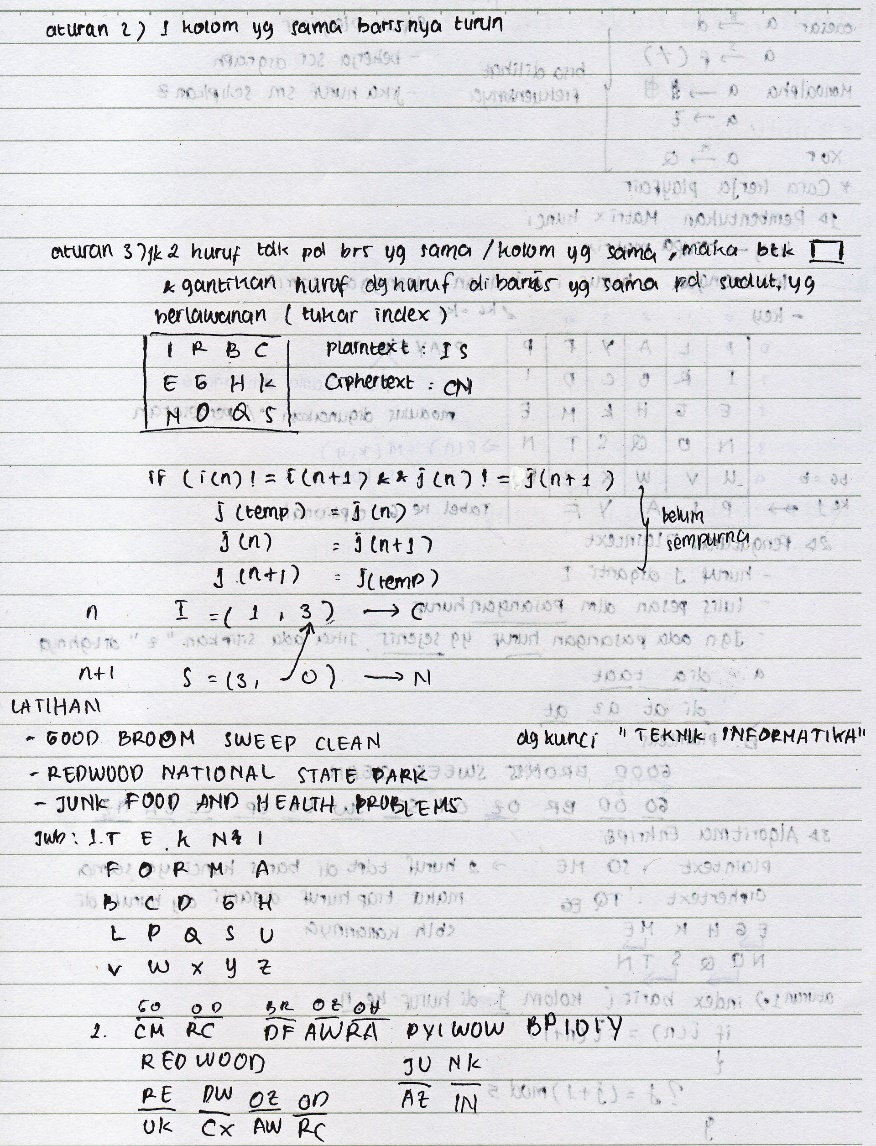 aturan 2) 1 kolom yg sama barisnya turun
aturan 3) jk 2 huruf tdk pd brs yg sama / kolom yg sama, maka btk
& gantikan huruf dg huruf dibaris yg sama pd sudut, yg
berlawanan ( tukar index )
I R B C plaintext : IS
E G H K Ciphertext : CN
N O Q S
if ( i(n) != i(n+1) && j(n) != j(n+1)
j (temp) = j(n)
j(n) = j(n+1)
j(n+1) = j(temp)
belum
sempurna
n I = ( 1 , 3 ) → C
n+1 S = (3, 0 ) → N
LATIHAN
- GOOD BROOM SWEEP CLEAN dg kunci "TEKNIK INFORMATIKA"
- REDWOOD NATIONAL STATE PARK
- JUNK FOOD AND HEALTH PROBLEMS
Jwb : 1. T E K N I
F O R M A
B C D G H
L P Q S U
V W X Y Z
GO OD BR OZ OM
2. CM RC DF AW RA PYIWOW BPIOIY
REDWOOD JU NK
RE DW OZ OD AZ IN
UK CX AW RC